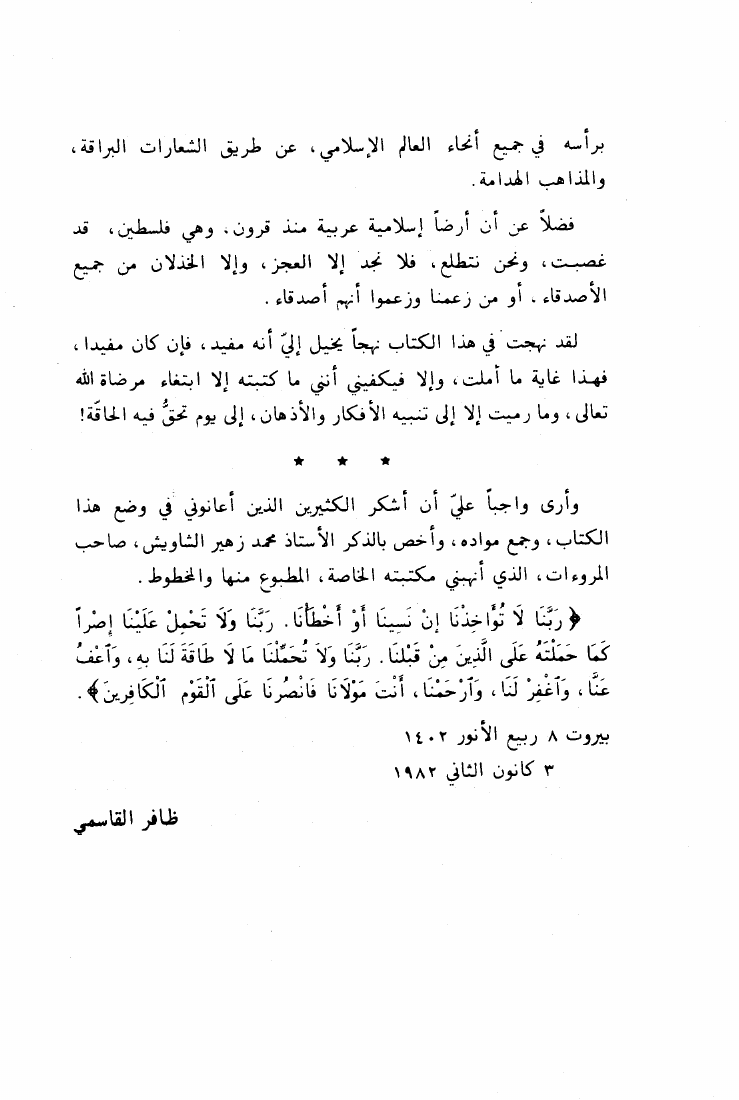 برأسه في جميع أنحاء العالم الإسلامي، عن طريق الشعارات البراقة،
والمذاهب الهدامة.
فضلاً عن أن أرضاً إسلامية عربية منذ قرون، وهي فلسطين، قد
غصبت، ونحن نتطلع، فلا نجد إلا العجز، وإلا الخذلان من جميع
الأصدقاء، أو من زعمنا وزعموا أنهم أصدقاء.
لقد نهجت في هذا الكتاب نهجاً يخيل إليّ أنه مفيد، فإن كان مفيدا،
فهذا غاية ما أملت، وإلا فيكفيني أنني ما كتبته إلا ابتغاء مرضاة الله
تعالى، وما رميت إلا إلى تنبيه الأفكار والأذهان، إلى يوم تحقُّ فيه الحاقّة!
★ ★ ★
وأرى واجباً عليّ أن أشكر الكثيرين الذين أعانوني في وضع هذا
الكتاب، وجمع مواده، وأخص بالذكر الأستاذ محمد زهير الشاويش، صاحب
المروءات، الذي أنهبني مكتبته الخاصة، المطبوع منها والمخطوط.
﴿ رَبَّنَا لَا تُؤَاخِذْنَا إِنْ نَسِينَا أَوْ أَخْطَأْنَا. رَبَّنَا وَلَا تَحْمِلْ عَلَيْنَا إِصْراً
كَمَا حَمَلْتَهُ عَلَى الَّذِينَ مِنْ قَبْلِنَا. رَبَّنَا وَلَا تُحَمِّلْنَا مَا لَا طَاقَةَ لَنَا بِهِ، وَٱعْفُ
عَنَّا، وَٱغْفِرْ لَنَا، وَٱرْحَمْنَا، أَنْتَ مَوْلَانَا فَانْصُرْنَا عَلَى ٱلْقَوْمِ ٱلْكَافِرِينَ﴾.
بيروت ٨ ربيع الأنور ١٤٠٢
٣ كانون الثاني ١٩٨٢
ظافر القاسمي